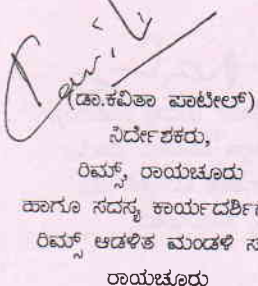 (ಡಾ.ಕವಿತಾ ಪಾಟೀಲ್)
ನಿರ್ದೇಶಕರು,
ರಿಮ್ಸ್, ರಾಯಚೂರು
ಹಾಗೂ ಸದಸ್ಯ ಕಾರ್ಯದರ್ಶಿ
ರಿಮ್ಸ್ ಆಡಳಿತ ಮಂಡಳಿ ಸ
ರಾಯಚೂರು